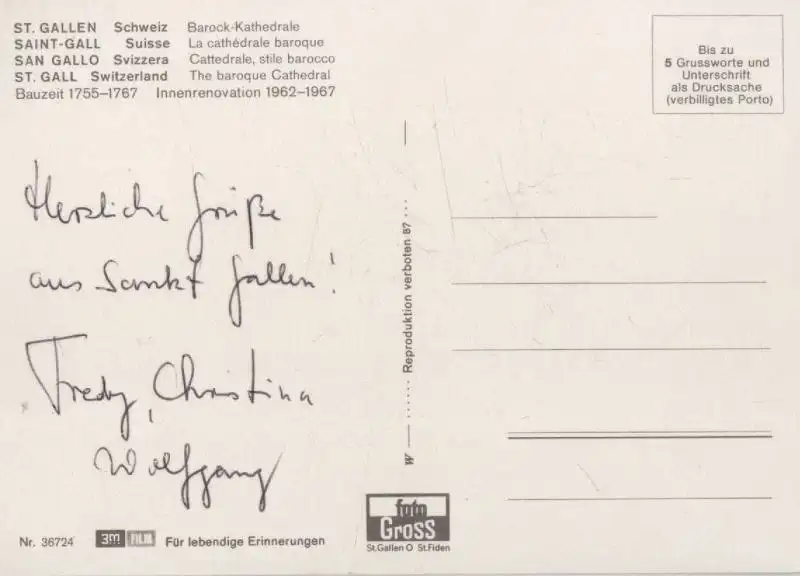 ST. GALLEN Schweiz Barock-Kathedrale
SAINT-GALL Suisse La cathédrale baroque
SAN GALLO Svizzera Cattedrale, stile barocco
ST. GALL Switzerland The baroque Cathedral
Bauzeit 1755–1767 Innenrenovation 1962–1967
Bis zu
5 Grussworte und
Unterschrift
als Drucksache
(verbilligtes Porto)
Herzliche Grüße
aus Sankt Gallen!
Fredy, Christina
Wolfgang
W — ...... Reproduktion verboten 87 ... —
foto
Gross
St.Gallen O St.Fiden
Nr. 36724 3M FILM Für lebendige Erinnerungen